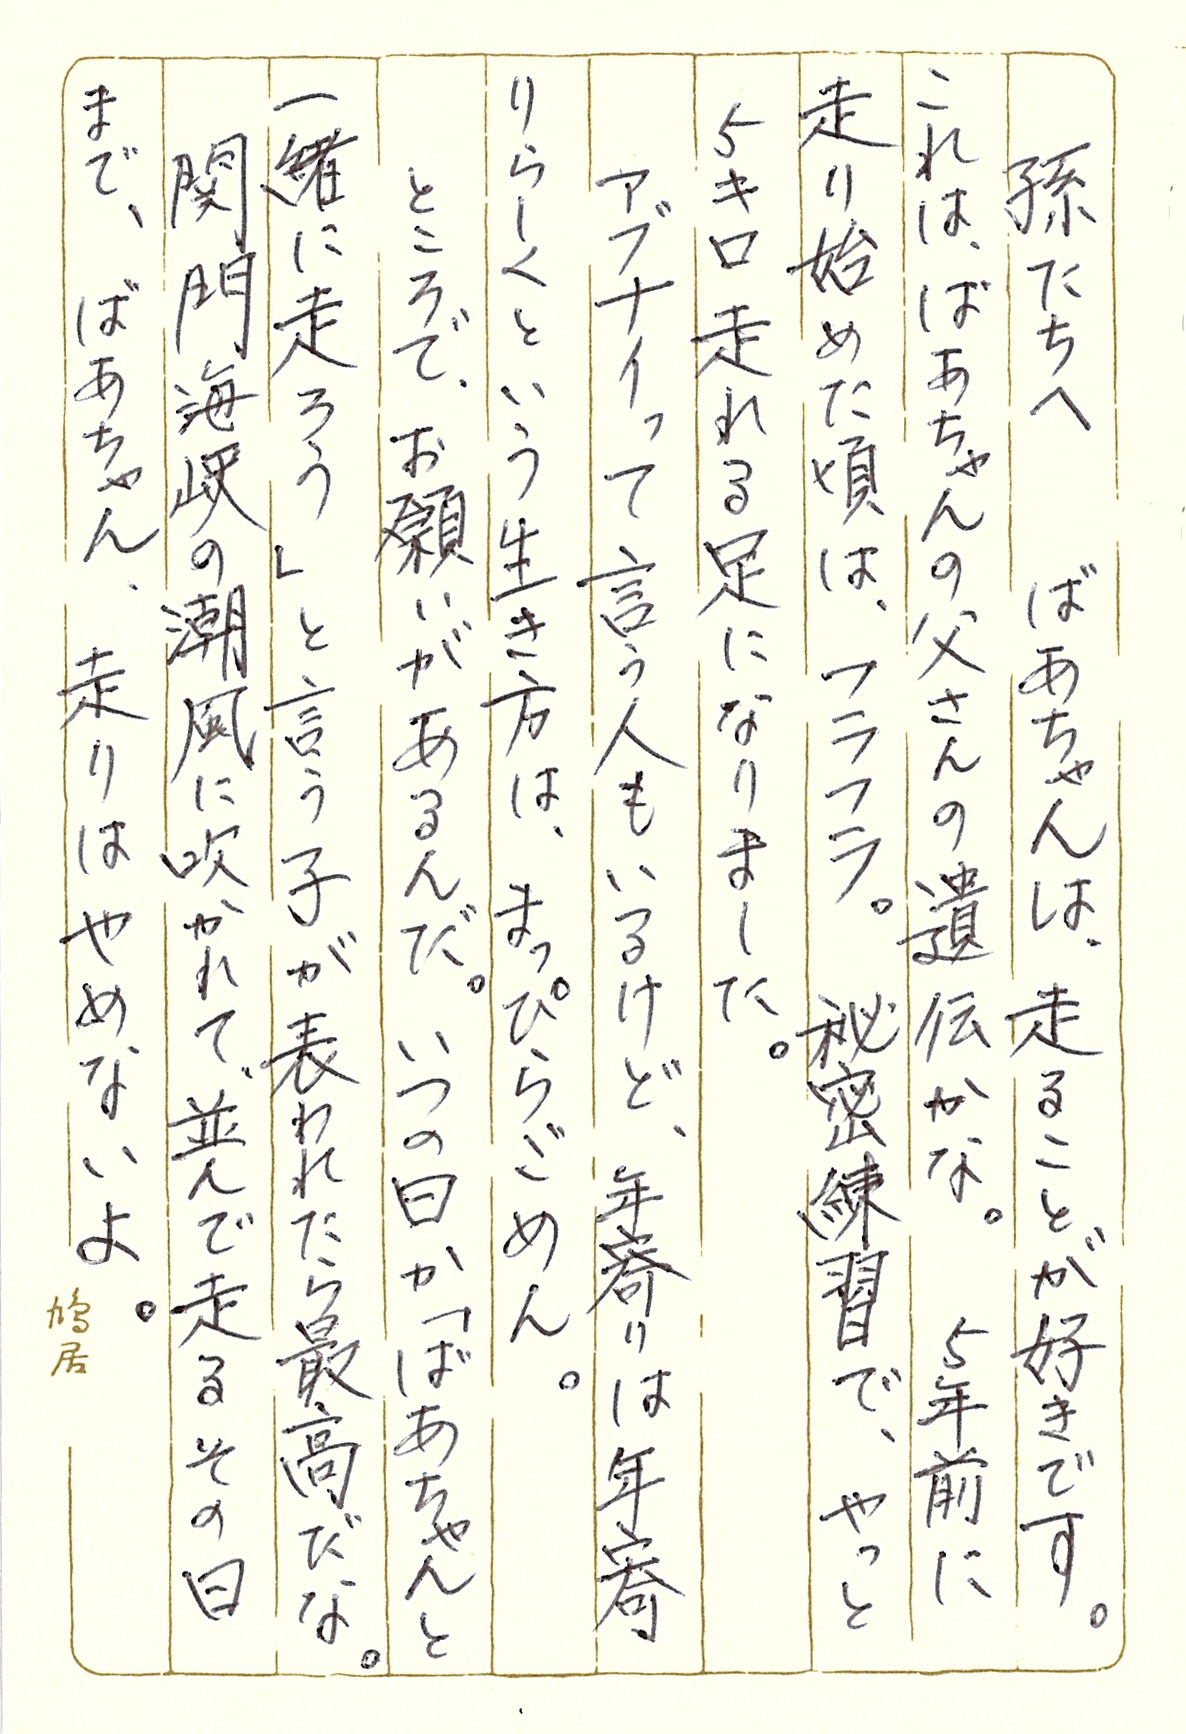 孫たちへ　ばあちゃんは、走ることが好きです。
これは、ばあちゃんの父さんの遺伝かな。５年前に
走り始めた頃は、フラフラ。秘密練習で、やっと
５キロ走れる足になりました。
アブナイって言う人もいるけど、年寄りは年寄
りらしくという生き方は、まっぴらごめん。
ところで、お願いがあるんだ。いつの日か「ばあちゃんと
一緒に走ろう」と言う子が表われたら最高だな。
関門海峡の潮風に吹かれて、並んで走るその日
まで、ばあちゃん、走りはやめないよ。
鳩居